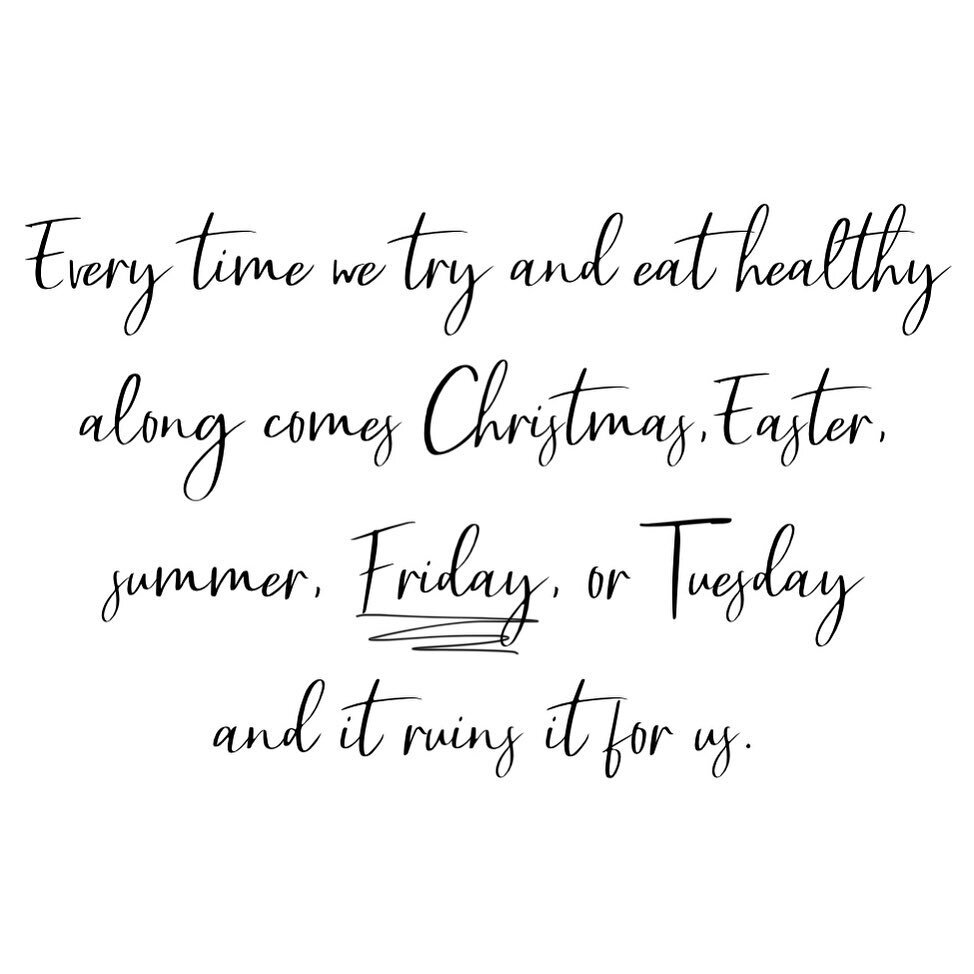 Every time we try and eat healthy
along comes Christmas, Easter,
summer, Friday, or Tuesday
and it ruins it for us.